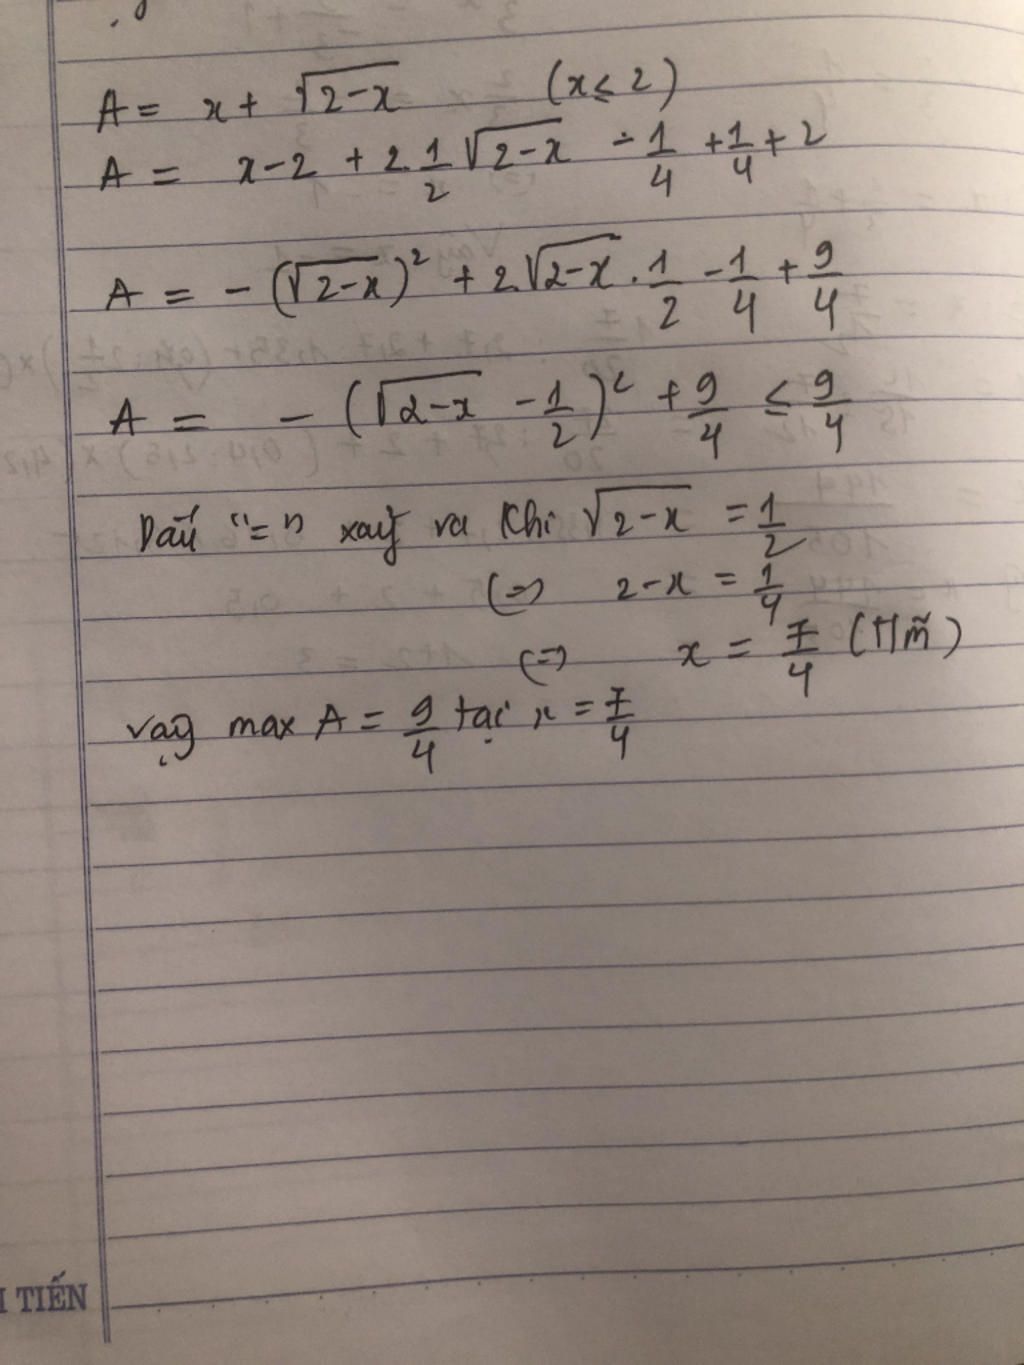 A = x + √2-x (x ≤ 2)
A = x-2 + 2.1/2 √2-x - 1/4 + 1/4 + 2
A = - (√2-x)² + 2.√2-x . 1/2 - 1/4 + 9/4
A = - (√2-x - 1/2)² + 9/4 ≤ 9/4
Dấu "=" xảy ra khi √2-x = 1/2
(=) 2-x = 1/4
(=) x = 7/4 (TMĐ)
vậy max A = 9/4 tại x = 7/4
TIẾN